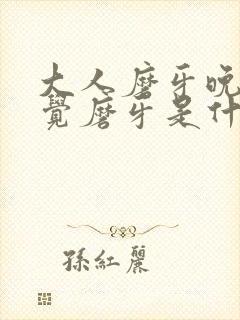 大人磨牙晚
覺磨牙是什
孫紅麗